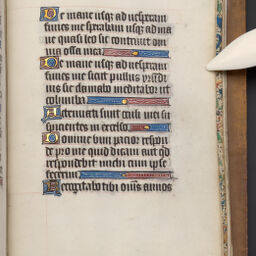 De mane usq; ad vesperam
finies me sperabam usq; ad ma
ne quasi leo sic contrivit om
nia ossa mea
De mane usq; ad vesperam
finies me sicut pullus yrūdi
nis sic clamabo meditabor ut
columba
Attenuati sunt oculi mei su
spicientes in excelso
Domine vim patior respon
de pro me quid dicam aut qd
respondebit michi cum ipse
fecerim
Recogitabo tibi omēs annos